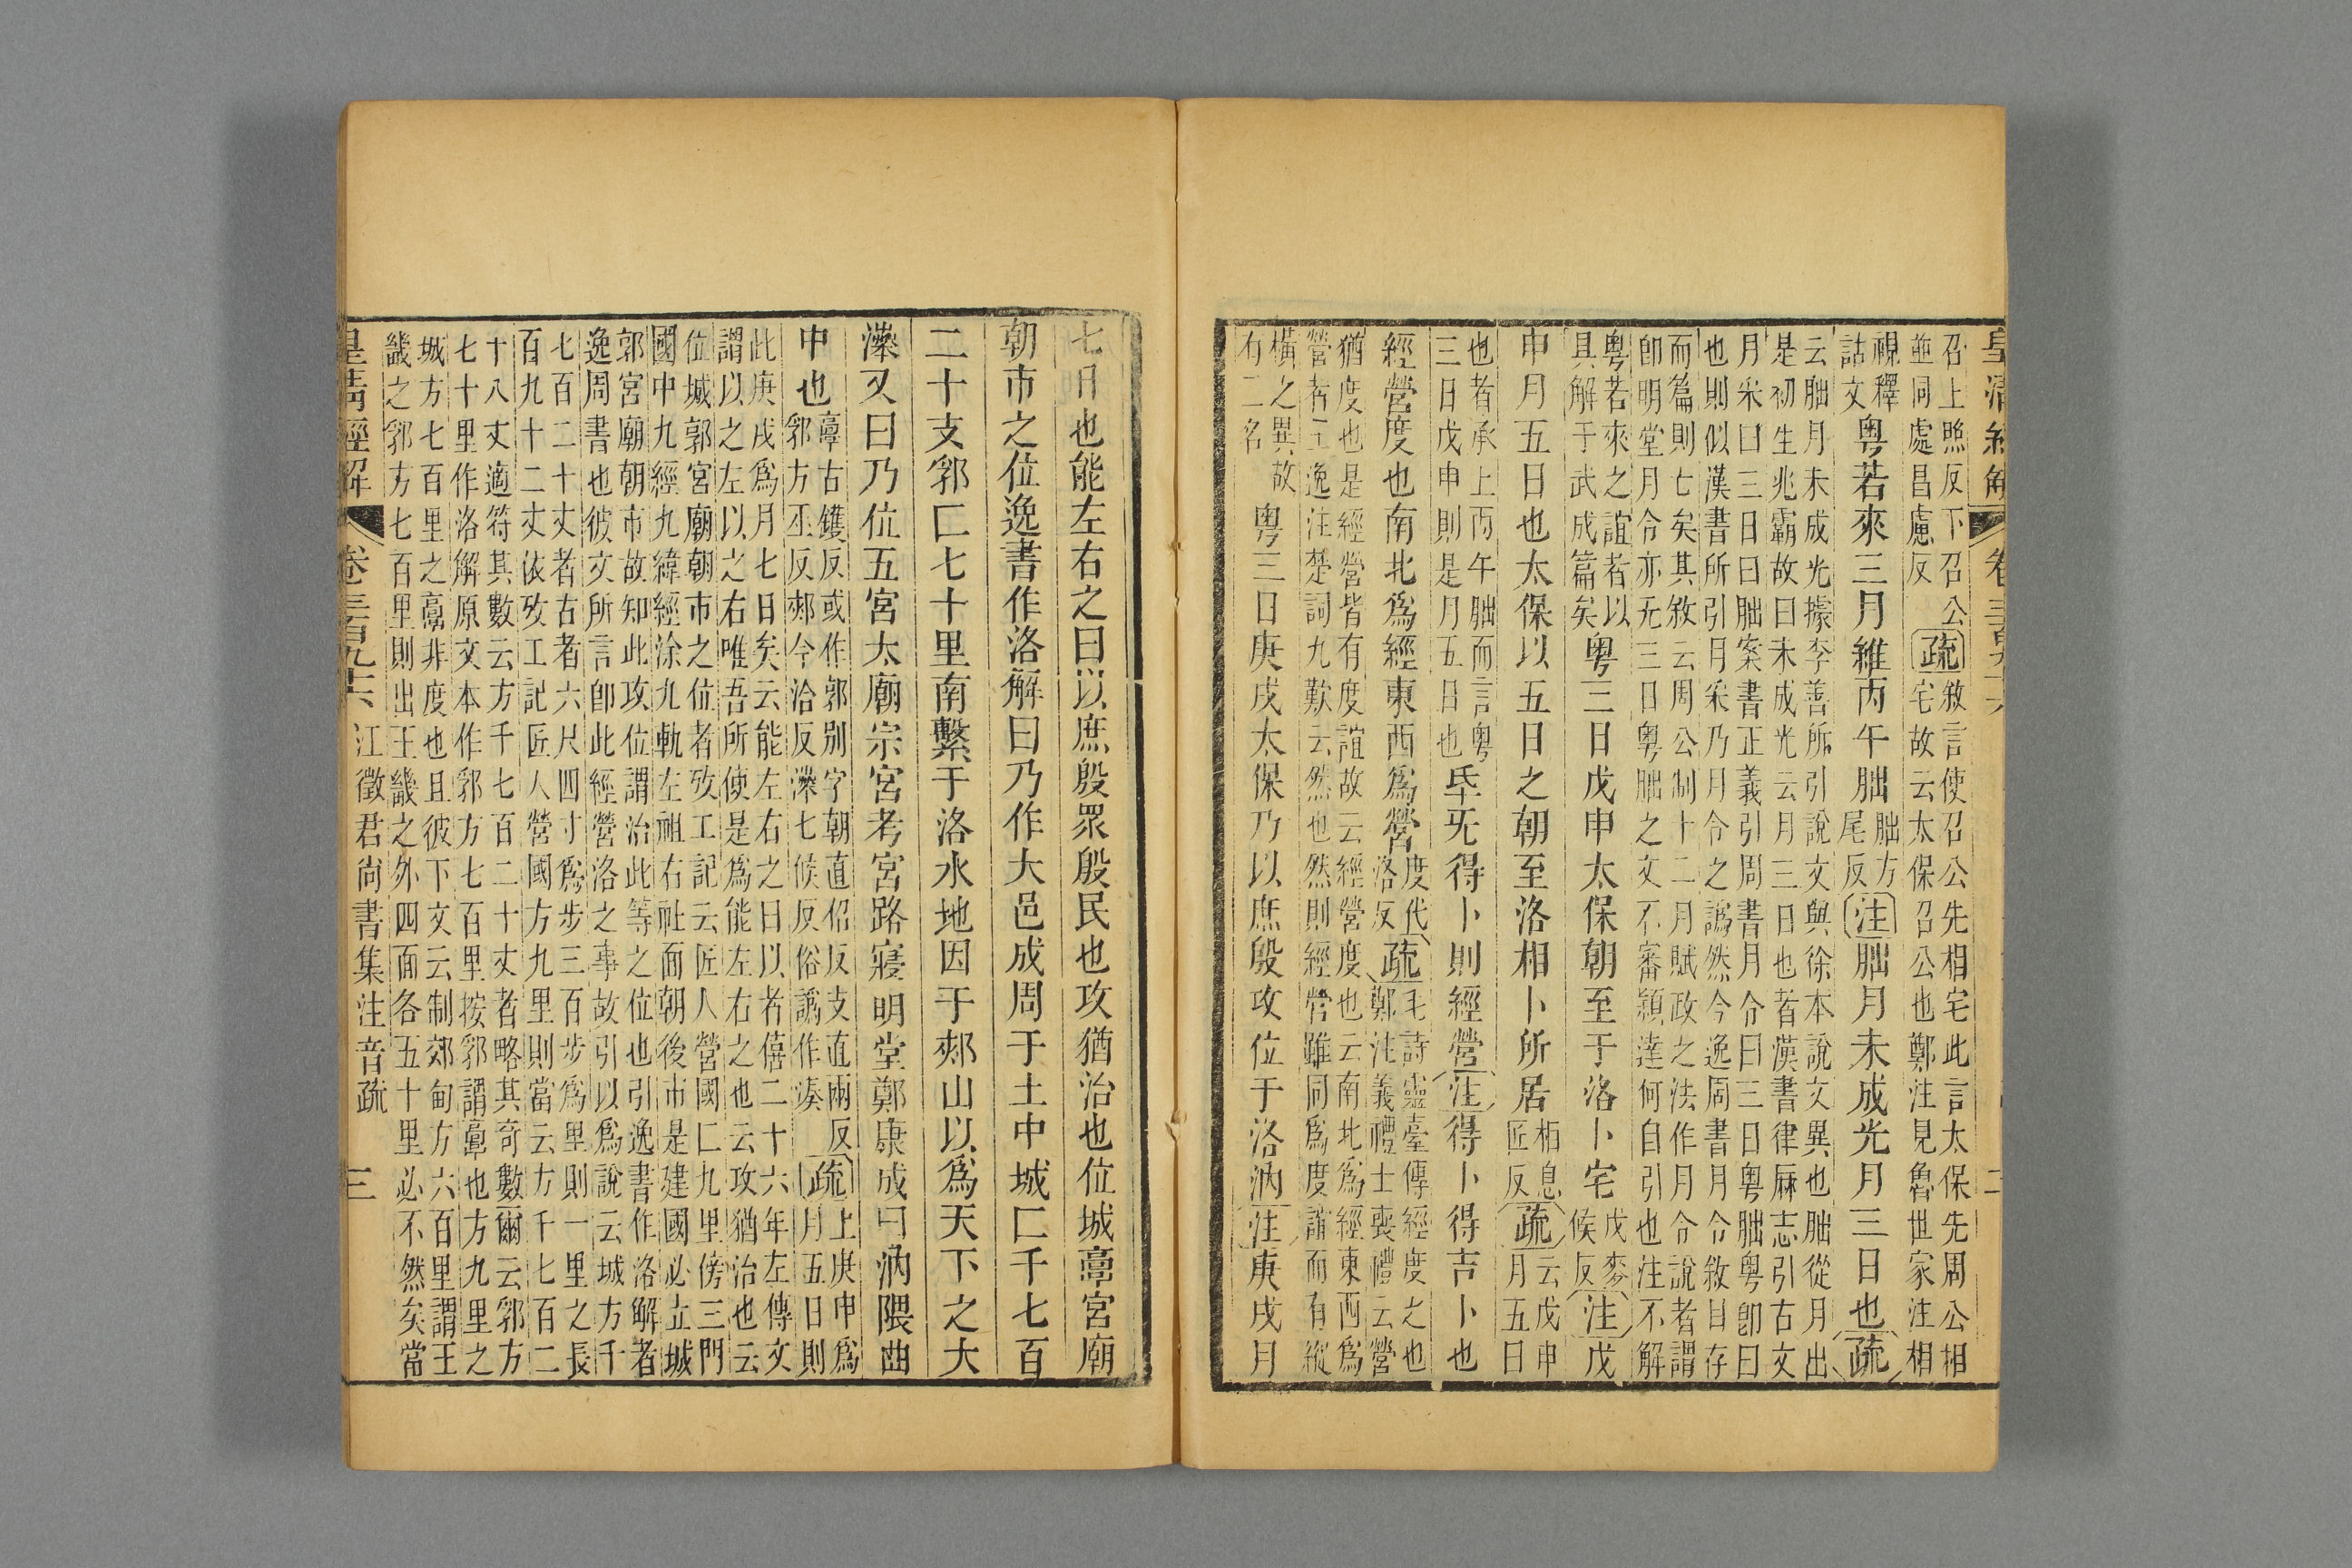 皇清經解 卷三百九十六 二
召上照反下召公竝同處昌慮反疏敘言使召公先相宅此言太保先周公相宅故云太保召公也鄭注見魯世家注相
視釋詁文粤若來三月維丙午朏朏方尾反注朏月未成光月三日也疏
云朏月未成光據李善所引說文與徐本說文異也朏從月出
是初生兆霸故曰未成光云月三日也者漢書律厤志引古文
月采曰三日曰朏案書正義引周書月令曰三日粤朏粤卽曰
也則似漢書所引月采乃月令之譌然今逸周書月令敘目存
而篇則亡矣其敘云周公制十二月賦政之法作月令說者謂
卽明堂月令亦无三日粤朏之文不審穎達何自引也注不解
粤若來之誼者以具解于武成篇矣粤三日戊申太保朝至于洛卜宅戊麥候反注戊
申月五日也太保以五日之朝至洛相卜所居相息匠反疏云戊申月五日
也者承上丙午朏而言粤三日戊申則是月五日也氒旡得卜則經營注得卜得吉卜也
經營度也南北爲經東西爲營度代洛反疏毛詩靈臺傳經度之也鄭注義禮士喪禮云營
猶度也是經營皆有度誼故云經營度也云南北爲經東西爲
營者王逸注楚詞九歎云然也然則經營雖同爲度誼而有縱
橫之異故有二名粤三日庚戌太保乃以庶殷攻位于洛汭注庚戌月
七日也能左右之曰以庶殷眾殷民也攻猶治也位城𩫏宮廟
朝市之位逸書作洛解曰乃作大邑成周于土中城匚千七百
二十支郛匚七十里南繫于洛水地因于郟山以爲天下之大
湊又曰乃位五宮太廟宗宮考宮路寢明堂鄭康成曰汭隈曲
中也𩫏古鑊反或作郭別字朝直佋反支直兩反郛方丕反郟今洽反湊七候反俗譌作凑疏上庚申爲月五日則
此庚戌爲月七日矣云能左右之曰以者僖二十六年左傳文
謂以之左以之右唯吾所使是爲能左右之也云攻猶治也云
位城郭宮廟朝市之位者攷工記云匠人營國匚九里傍三門
國中九經九緯經涂九軌左祖右社面朝後市是建國必立城
郭宮廟朝市故知此攻位謂治此等之位也引逸書作洛解者
逸周書也彼文所言卽此經營洛之事故引以爲說云城方千
七百二十丈者古者六尺四寸爲步三百步爲里則一里之長
百九十二丈依攷工記匠人營國方九里則當云方千七百二
十八丈適符其數云方千七百二十丈者略其奇數爾云郛方
七十里作洛解原文本作郛方七百里按郛謂𩫏也方九里之
城方七百里之𩫏非度也且彼下文云制郊甸方六百里謂王
畿之郛方七百里則出王畿之外四面各五十里必不然矣當
皇清經解 卷三百九十六 江徵君尚書集注音疏 三